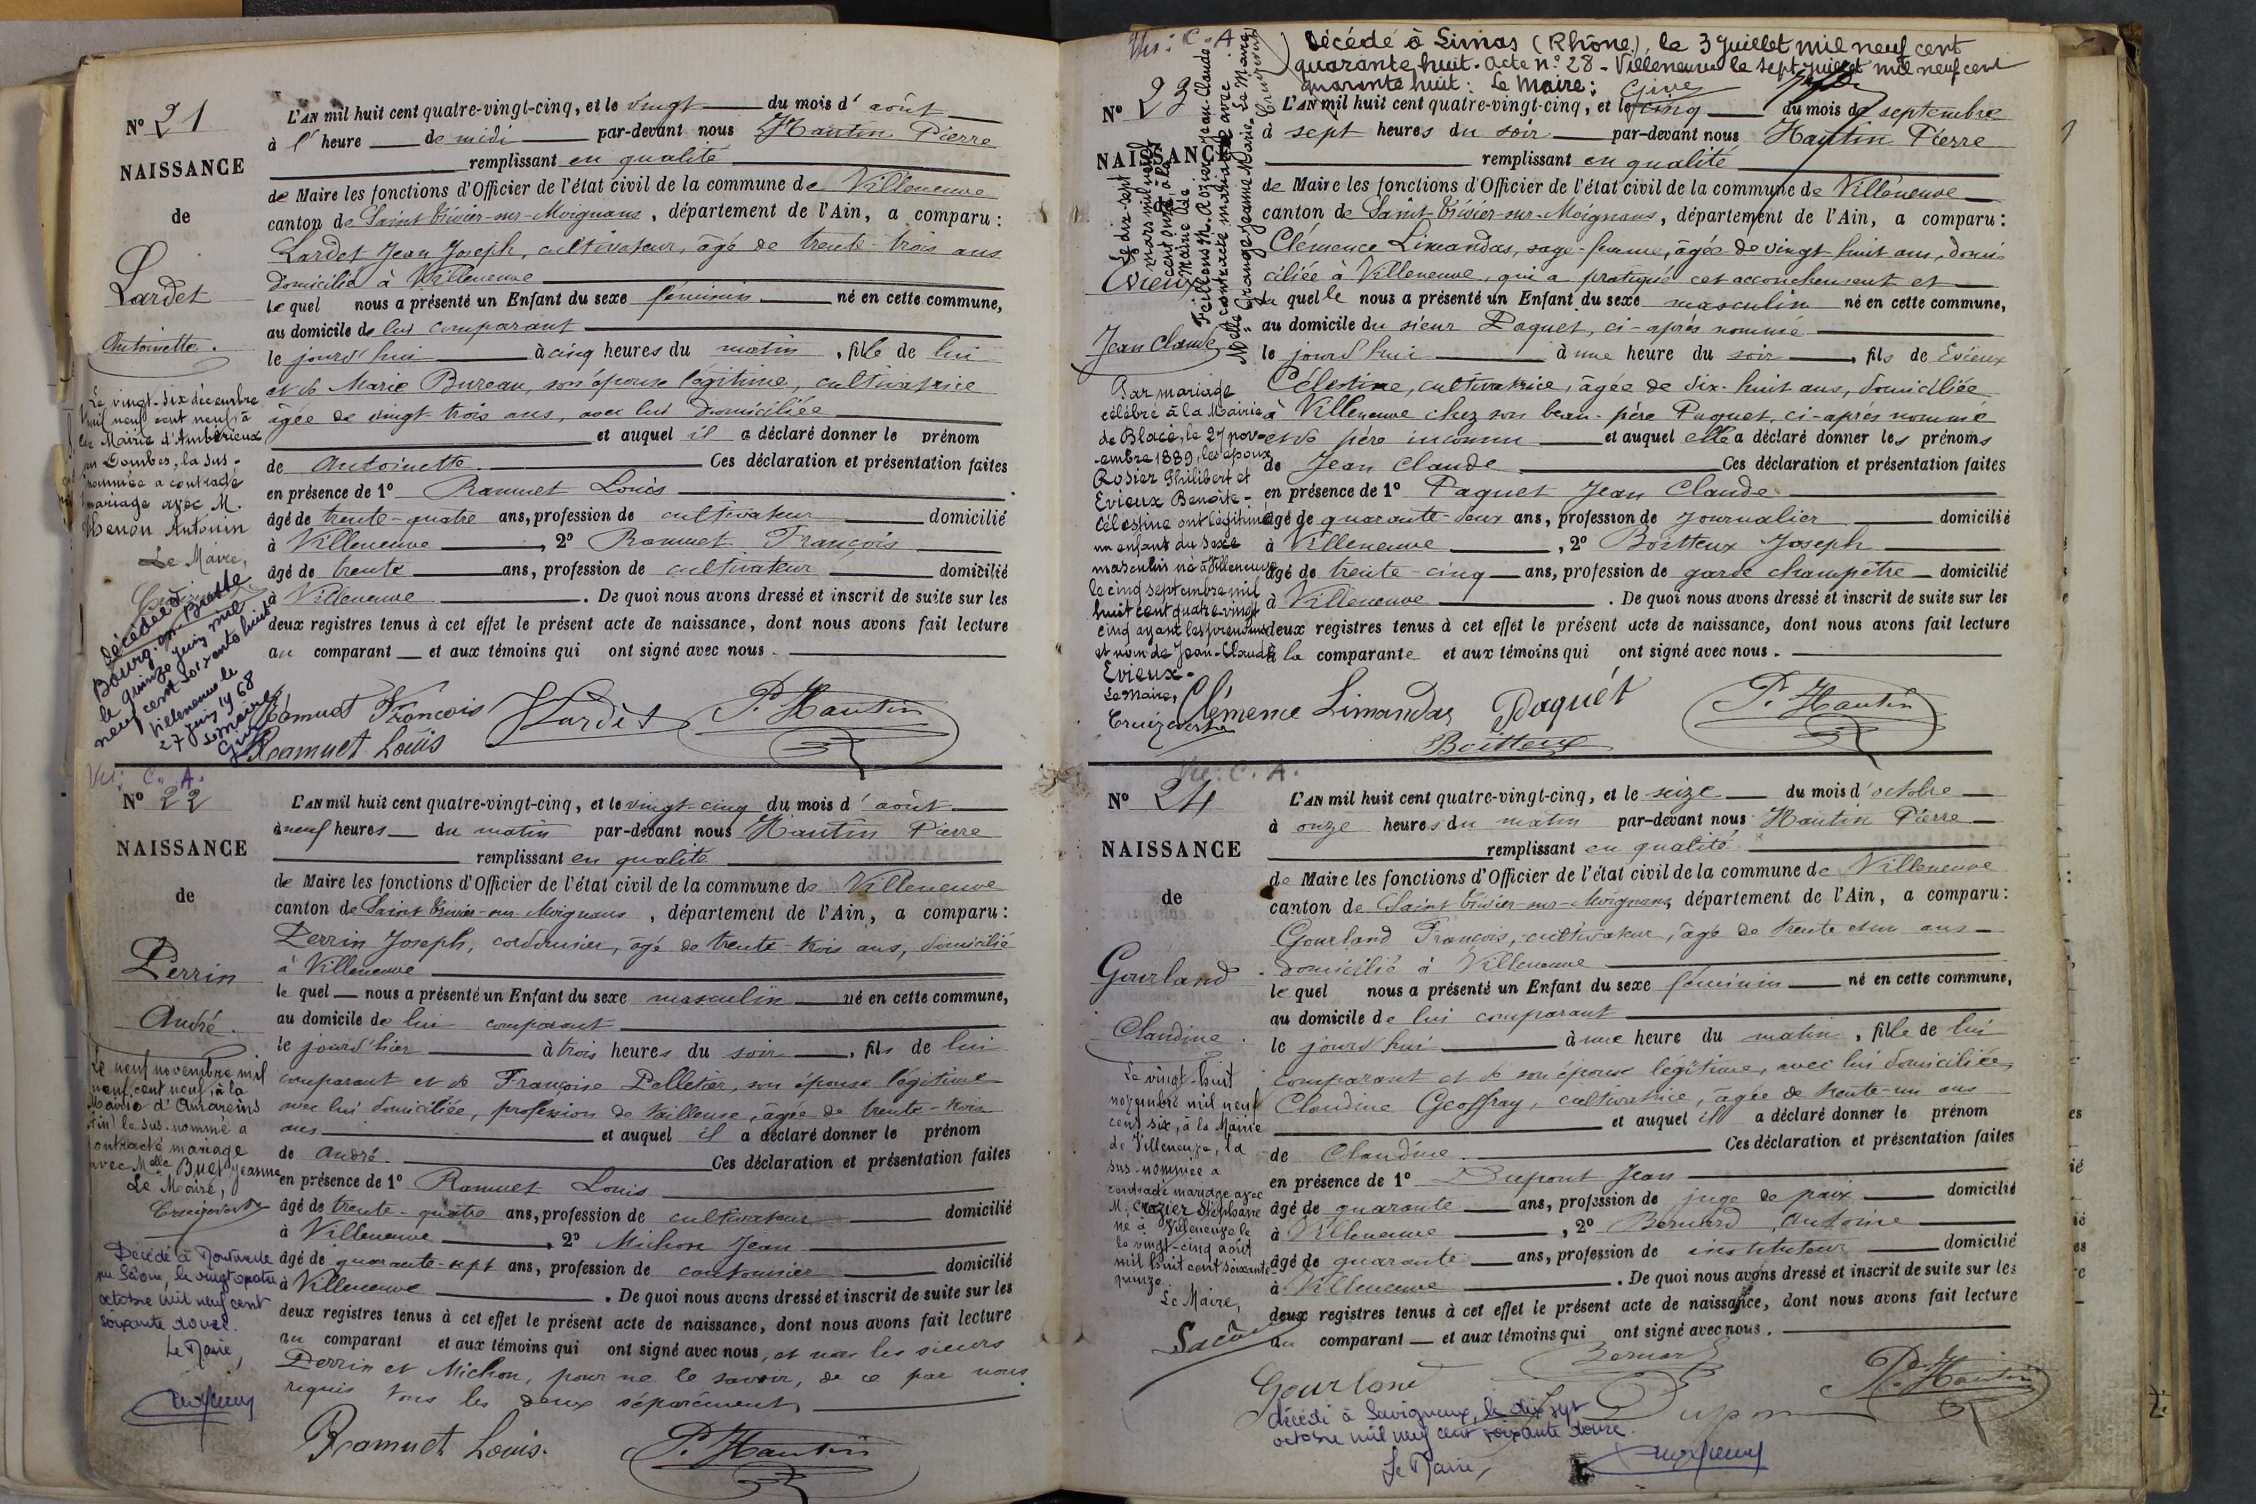 N° 21
NAISSANCE
de
Lardet
Antoinette.
Le vingt-six décembre
mil neuf cent neuf, à
la Mairie d'Ambérieux
en Dombes, la sus-
nommée a contracté
mariage avec M.
Thenon Antonin
Le Maire,
Décédée à
Bourg-en-Bresse
le quinze juin mil
neuf cent soixante huit
Villeneuve le
27 juin 1968
Le Maire
L'AN mil huit cent quatre-vingt-cinq, et le vingt du mois d'août
à l'heure de midi par-devant nous Hautin Pierre
remplissant en qualité
de Maire les fonctions d'Officier de l'état civil de la commune de Villeneuve
canton de Saint-Trivier-sur-Moignans, département de l'Ain, a comparu :
Lardet Jean Joseph, cultivateur, âgé de trente-trois ans
domicilié à Villeneuve
le quel nous a présenté un Enfant du sexe féminin né en cette commune,
au domicile de lui comparant
le jourd'hui à cinq heures du matin, fille de lui
et de Marie Bureau, son épouse légitime, cultivatrice
âgée de vingt-trois ans, avec lui domiciliée
et auquel il a déclaré donner le prénom
de Antoinette Ces déclaration et présentation faites
en présence de 1° Ramuet Louis
âgé de trente-quatre ans, profession de cultivateur domicilié
à Villeneuve, 2° Ramuet François
âgé de trente ans, profession de cultivateur domicilié
à Villeneuve. De quoi nous avons dressé et inscrit de suite sur les
deux registres tenus à cet effet le présent acte de naissance, dont nous avons fait lecture
au comparant et aux témoins qui ont signé avec nous.
Ramuet François Lardet P. Hautin
Ramuet Louis
Vu: C. A.
N° 22
NAISSANCE
de
Perrin
André.
Le neuf novembre mil
neuf cent neuf, à la
Mairie d'Amareins
(Ain) le sus-nommé a
contracté mariage
avec Melle Buet Jeanne
Le Maire,
Décédé à Montmerle
sur Saône, le vingt quatre
octobre mil neuf cent
soixante douze.
Le Maire,
L'AN mil huit cent quatre-vingt-cinq, et le vingt-cinq du mois d'août
à neuf heures du matin par-devant nous Hautin Pierre
remplissant en qualité
de Maire les fonctions d'Officier de l'état civil de la commune de Villeneuve
canton de Saint Trivier-sur-Moignans, département de l'Ain, a comparu :
Perrin Joseph, cordonnier, âgé de trente-trois ans, domicilié
à Villeneuve
le quel nous a présenté un Enfant du sexe masculin né en cette commune,
au domicile de lui comparant
le jourd'hier à trois heures du soir, fils de lui
comparant et de Françoise Pelletier, son épouse légitime
avec lui domiciliée, profession de tailleuse, âgée de trente-trois
ans et auquel il a déclaré donner le prénom
de André. Ces déclaration et présentation faites
en présence de 1° Ramuet Louis
âgé de trente-quatre ans, profession de cultivateur domicilié
à Villeneuve, 2° Michon Jean
âgé de quarante-sept ans, profession de cantonnier domicilié
à Villeneuve. De quoi nous avons dressé et inscrit de suite sur les
deux registres tenus à cet effet le présent acte de naissance, dont nous avons fait lecture
au comparant et aux témoins qui ont signé avec nous, et non les sieurs
Perrin et Michon, pour ne le savoir, de ce par nous
requis tous les deux séparément
Ramuet Louis. P. Hautin
Vu: C. A.
Décédé à Limas (Rhône), le 3 Juillet mil neuf cent
quarante huit. Acte n° 28 - Villeneuve le sept juillet mil neuf cent
quarante huit : Le Maire :
N° 23
NAISSANCE
de
Evieux
Jean Claude
Le dix-sept
mars mil neuf
cent onze à la
Mairie de
Feillens M. Rozier Jean-Claude
a contracté mariage avec
Melle Grange Jeanne Marie. Le Maire,
Par mariage
célébré à la Mairie
de Blacé, le 27 nov-
embre 1889, les époux
Rosier Philibert et
Evieux Benoîte-
Célestine ont légitimé
un enfant du sexe
masculin né à Villeneuve
le cinq septembre mil
huit cent quatre-vingt
cinq ayant les prénoms
et nom de Jean-Claude
Evieux.
Le Maire,
L'AN mil huit cent quatre-vingt-cinq, et le cinq du mois de septembre
à sept heures du soir par-devant nous Hautin Pierre
remplissant en qualité
de Maire les fonctions d'Officier de l'état civil de la commune de Villeneuve
canton de Saint-Trivier-sur-Moignans, département de l'Ain, a comparu :
Clémence Limandas, sage-femme, âgée de vingt-huit ans, domi-
ciliée à Villeneuve, qui a pratiqué cet accouchement et
la quelle nous a présenté un Enfant du sexe masculin né en cette commune,
au domicile du sieur Paquet, ci-après nommé
le jourd'hui à une heure du soir, fils de Evieux
Célestine, cultivatrice, âgée de dix-huit ans, domiciliée
à Villeneuve chez son beau-père Paquet, ci-après nommé
et de père inconnu et auquel elle a déclaré donner les prénoms
de Jean Claude Ces déclaration et présentation faites
en présence de 1° Paquet Jean Claude
âgé de quarante-deux ans, profession de journalier domicilié
à Villeneuve, 2° Boitteux Joseph
âgé de trente-cinq ans, profession de garde champêtre domicilié
à Villeneuve. De quoi nous avons dressé et inscrit de suite sur les
deux registres tenus à cet effet le présent acte de naissance, dont nous avons fait lecture
à la comparante et aux témoins qui ont signé avec nous.
Clémence Limandas Paquét P. Hautin
Boitteux
Vu: C. A.
N° 24
NAISSANCE
de
Gourland
Claudine.
Le vingt-huit
novembre mil neuf
cent six, à la Mairie
de Villeneuve, la
sus-nommée a
contracté mariage avec
M. Crozier Stéphane
né à Villeneuve le
le vingt-cinq août
mil huit cent soixante-
quinze
Le Maire,
L'AN mil huit cent quatre-vingt-cinq, et le seize du mois d'octobre
à onze heures du matin par-devant nous Hautin Pierre
remplissant en qualité
de Maire les fonctions d'Officier de l'état civil de la commune de Villeneuve
canton de Saint Trivier-sur-Moignans, département de l'Ain, a comparu :
Gourland François, cultivateur, âgé de trente et un ans
domicilié à Villeneuve
le quel nous a présenté un Enfant du sexe féminin né en cette commune,
au domicile de lui comparant
le jourd'hui à une heure du matin, fille de lui
comparant et de son épouse légitime, avec lui domiciliée
Claudine Geoffray, cultivatrice, âgée de trente-un ans
et auquel il a déclaré donner le prénom
de Claudine. Ces déclaration et présentation faites
en présence de 1° Dupont Jean
âgé de quarante ans, profession de juge de paix domicilié
à Villeneuve, 2° Bernard Antoine
âgé de quarante ans, profession de instituteur domicilié
à Villeneuve. De quoi nous avons dressé et inscrit de suite sur les
deux registres tenus à cet effet le présent acte de naissance, dont nous avons fait lecture
au comparant et aux témoins qui ont signé avec nous.
Gourland Bernard P. Hautin
Dupont
décédé à Savigneux, le dix sept
octobre mil neuf cent soixante douze.
Le Maire,